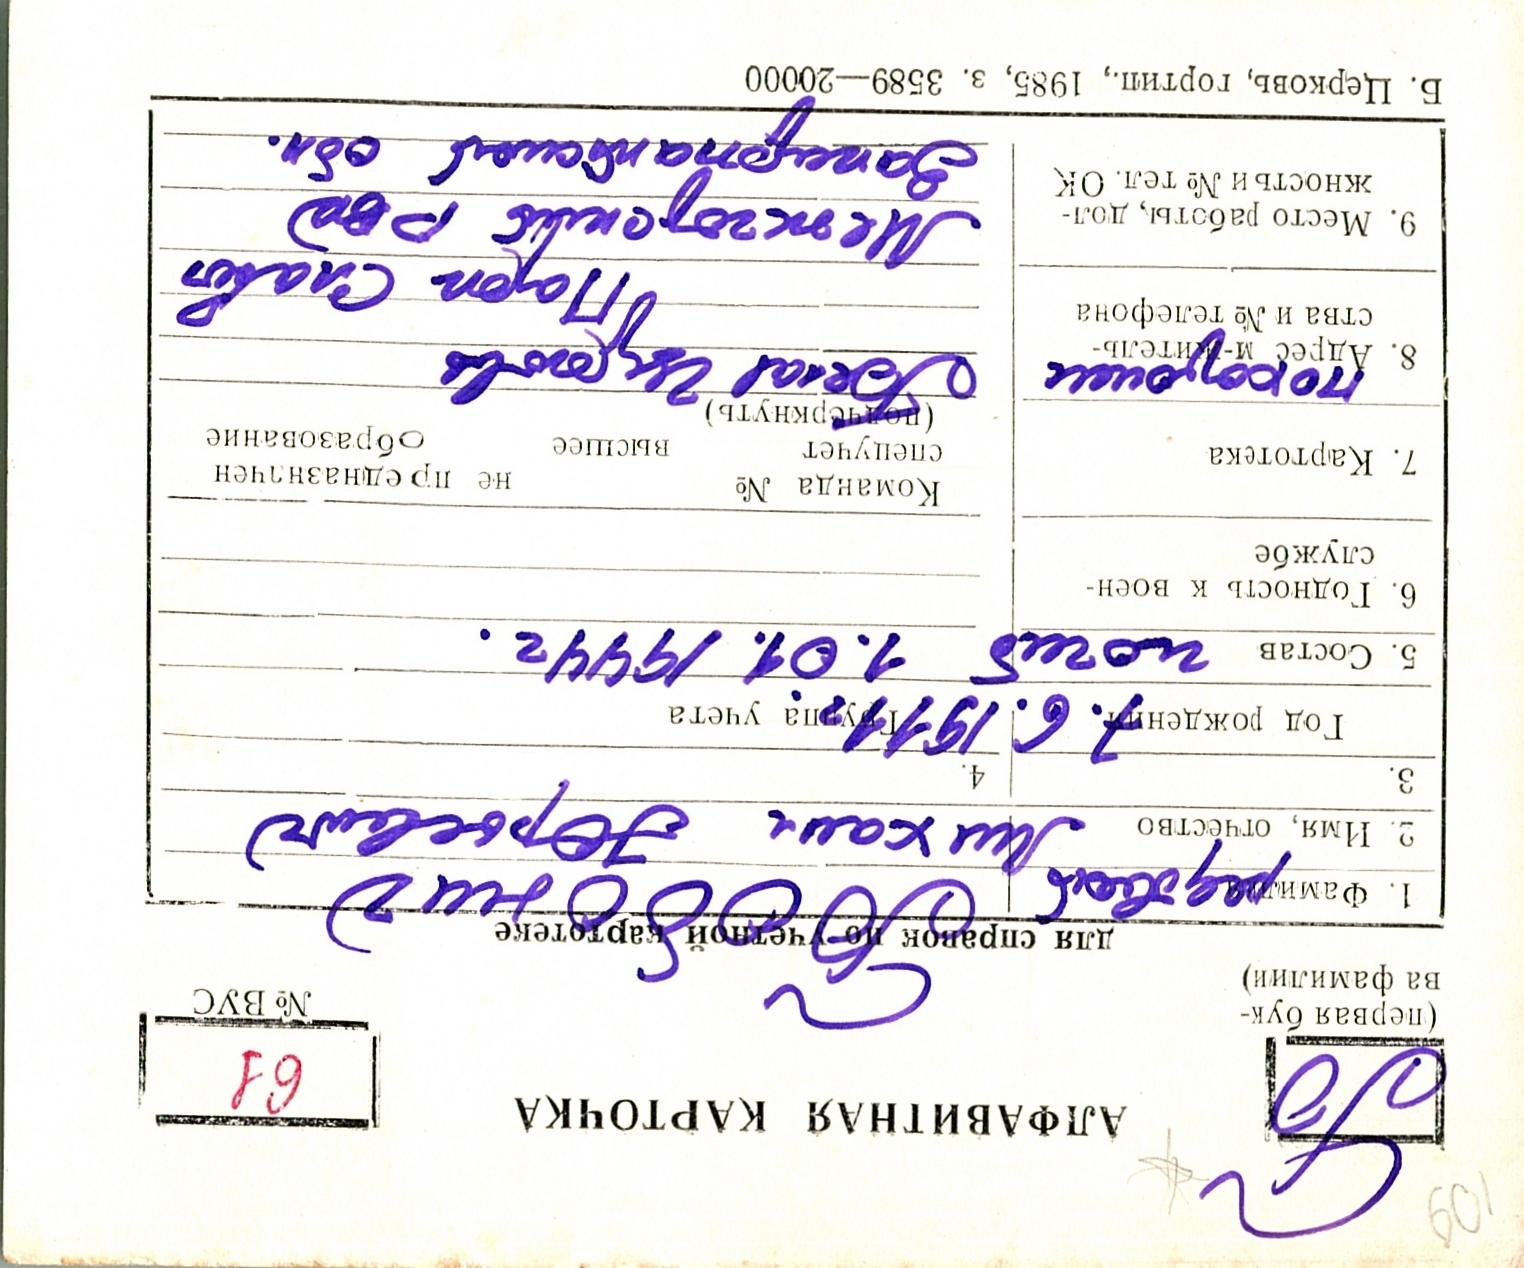 109
Б
АЛФАВИТНАЯ КАРТОЧКА
(первая бук-
ва фамилии)
№ ВУС
для справок по учетной картотеке
1. Фамилия рядовой
2. Имя, отчество Михаил Юрьевич
3. Год рождения 7.6.1911г.
4. Группа учета
5. Состав погиб 1.01.1944г.
6. Годность к воен-
службе
7. Картотека
Команда № не предназначен
спецучет высшее образование
(подчеркнуть)
8. Адрес м-житель-
ства и № телефона
похоронен Белая Церковь
Парк Славы
9. Место работы, дол-
жность и № тел. ОК
Межгорский РВК
Закарпатской обл.
Б. Церковь, гортип., 1985, з. 3589—20000